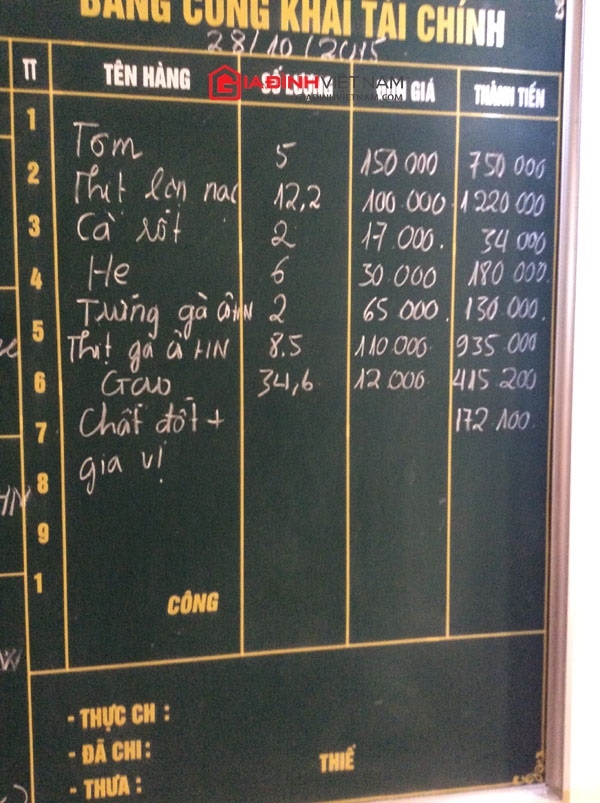 BẢNG CÔNG KHAI TÀI CHÍNH
28/10/2015
TT TÊN HÀNG SỐ LƯỢNG ĐƠN GIÁ THÀNH TIỀN
GIAĐÌNHVIETNAM
GIADINHVIETNAM.COM
1 Tôm 5 150 000 750 000
2 Thịt lợn nạc 12,2 100 000 1 220 000
3 Cà rốt 2 17 000. 34 000
4 Hẹ 6 30 000 180 000.
Trứng gà ÂHN 2 65 000. 130 000.
5 Thịt gà Â HN 8.5 110 000 935 000
6 Gạo 34,6 12 000 415 200
7 Chất đốt + 172 100.
8 gia vị
9
1
CÔNG
- THỰC CH :
- ĐÃ CHI :
- THƯA :
THIẾ
HN